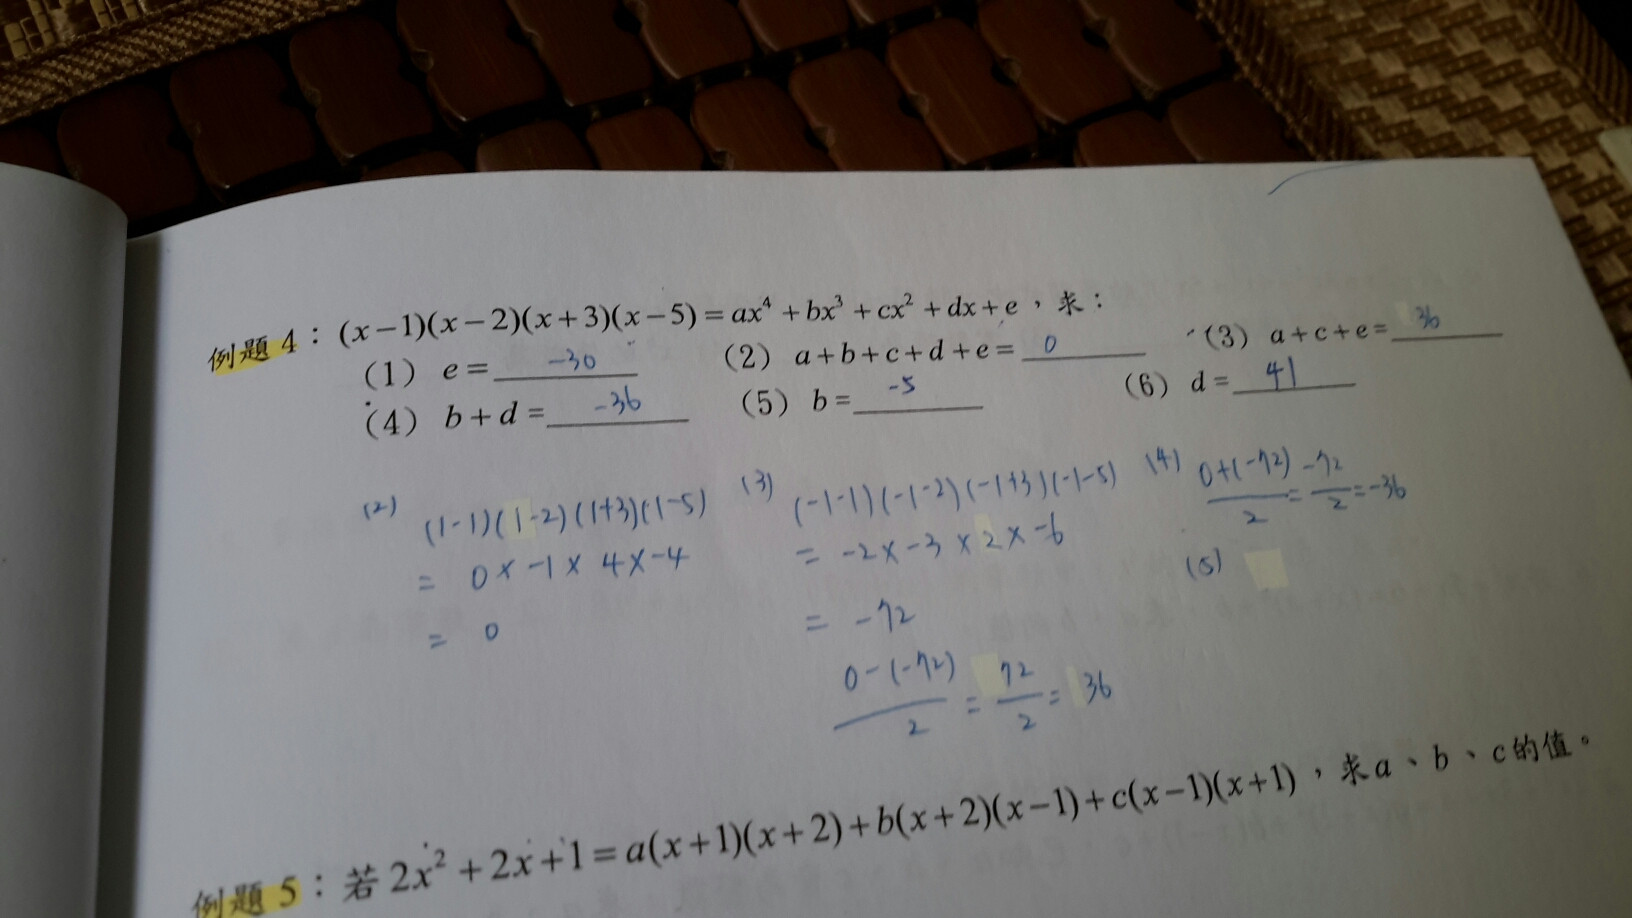 例題 4：(x−1)(x−2)(x+3)(x−5)=ax⁴+bx³+cx²+dx+e，求：
(1) e= -30 (2) a+b+c+d+e= 0 (3) a+c+e= 36
(4) b+d= -36 (5) b= -5 (6) d= 41
(2) (1-1)(1-2)(1+3)(1-5)
= 0×-1×4×-4
= 0
(3) (-1-1)(-1-2)(-1+3)(-1-5)
= -2×-3×2×-6
= -72
0-(-72)/2 = 72/2 = 36
(4) 0+(-72)/2 = -72/2 = -36
(5)
例題 5：若 2x²+2x+1=a(x+1)(x+2)+b(x+2)(x−1)+c(x−1)(x+1)，求a、b、c的值。